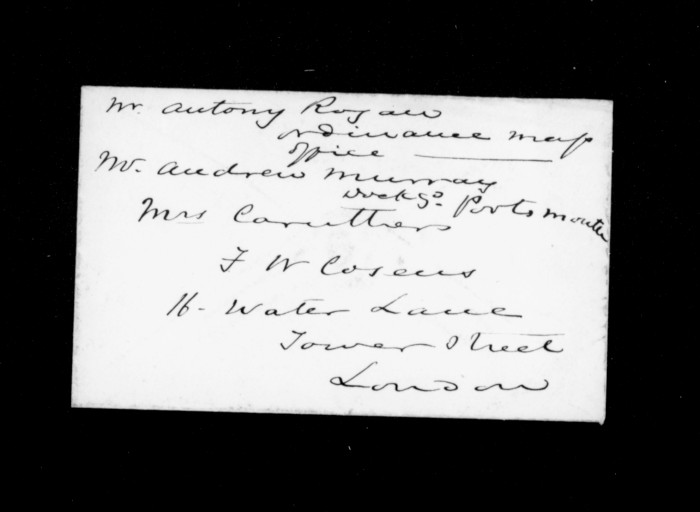 Mr. Antony Rogan
Ordinance map
office
Mr. Andrew Murray
Dockyd. Portsmouth
Mrs Caruthers
F W Cosens
16 - Water Lane
Tower Street
London